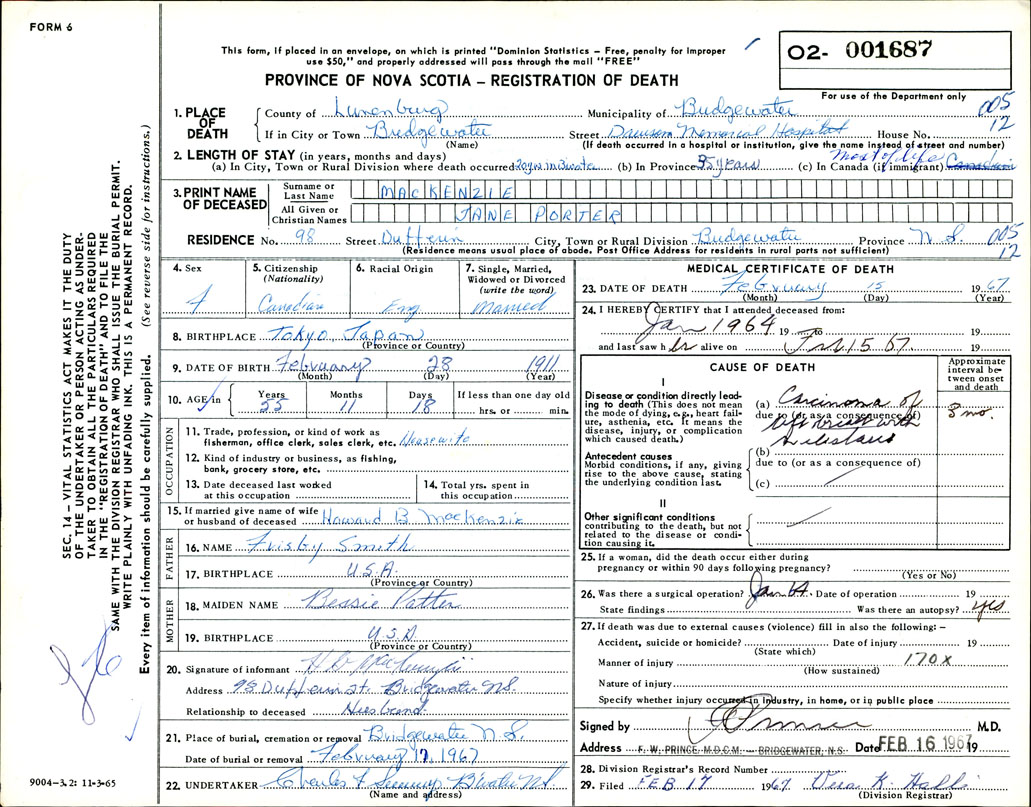 FORM 6
This form, if placed in an envelope, on which is printed "Dominion Statistics – Free, penalty for improper
use $50," and properly addressed will pass through the mail "FREE"
PROVINCE OF NOVA SCOTIA – REGISTRATION OF DEATH
O2- 001687
For use of the Department only
005
12
1. PLACE OF DEATH
County of Lunenburg Municipality of Bridgewater
If in City or Town Bridgewater Street Dawson Memorial Hospital House No.
(Name) (If death occurred in a hospital or institution, give the name instead of street and number)
2. LENGTH OF STAY (in years, months and days)
(a) In City, Town or Rural Division where death occurred 20 yrs. in B'water (b) In Province 35 years (c) In Canada (if immigrant) Most of life Canadian
3. PRINT NAME OF DECEASED
Surname or Last Name MACKENZIE
All Given or Christian Names JANE PORTER
RESIDENCE No. 98 Street Dufferin City, Town or Rural Division Bridgewater Province N.S. 005
12
(Residence means usual place of abode. Post Office Address for residents in rural parts not sufficient)
4. Sex F
5. Citizenship (Nationality) Canadian
6. Racial Origin Eng
7. Single, Married, Widowed or Divorced (write the word) Married
8. BIRTHPLACE Tokyo, Japan
(Province or Country)
9. DATE OF BIRTH February 28 1911
(Month) (Day) (Year)
10. AGE in Years 55 Months 11 Days 18 If less than one day old hrs. or min.
OCCUPATION
11. Trade, profession, or kind of work as
fisherman, office clerk, sales clerk, etc. Housewife
12. Kind of industry or business, as fishing,
bank, grocery store, etc.
13. Date deceased last worked
at this occupation
14. Total yrs. spent in
this occupation
15. If married give name of wife
or husband of deceased Howard B. MacKenzie
FATHER
16. NAME Frisby Smith
17. BIRTHPLACE U.S.A.
(Province or Country)
MOTHER
18. MAIDEN NAME Bessie
19. BIRTHPLACE U.S.A
(Province or Country)
20. Signature of informant H B MacKenzie
Address 98 Dufferin St. Bridgewater N.S.
Relationship to deceased Husband
21. Place of burial, cremation or removal Bridgewater N.S.
Date of burial or removal February 17, 1967
22. UNDERTAKER Charles B'water N.S.
(Name and address)
MEDICAL CERTIFICATE OF DEATH
23. DATE OF DEATH February 15 1967
(Month) (Day) (Year)
24. I HEREBY CERTIFY that I attended deceased from:
Jan 1964 19 to 19
and last saw her alive on Feb 15 67. 19
CAUSE OF DEATH
Approximate interval between onset and death
I
Disease or condition directly leading to death (This does not mean the mode of dying, e.g., heart failure, asthenia, etc. It means the disease, injury, or complication which caused death.)
(a) Carcinoma of
due to (or as a consequence of)
left breast with
3 mo.
Antecedent causes
Morbid conditions, if any, giving rise to the above cause, stating the underlying condition last.
(b)
due to (or as a consequence of)
(c)
II
Other significant conditions
contributing to the death, but not related to the disease or condition causing it.
25. If a woman, did the death occur either during
pregnancy or within 90 days following pregnancy?
(Yes or No)
26. Was there a surgical operation? Jan 64. Date of operation 19
State findings Was there an autopsy? yes
27. If death was due to external causes (violence) fill in also the following: –
Accident, suicide or homicide? Date of injury 19
(State which)
Manner of injury 170X
(How sustained)
Nature of injury
Specify whether injury occurred in Industry, in home, or in public place
Signed by M.D.
Address F. W. PRINCE. M.D.C.M. – BRIDGEWATER, N.S. Date FEB 16 1967 19
28. Division Registrar's Record Number
29. Filed FEB 17 1967. Vera K.
(Division Registrar)
SEC. 14 – VITAL STATISTICS ACT MAKES IT THE DUTY
OF THE UNDERTAKER OR PERSON ACTING AS UNDER-
TAKER TO OBTAIN ALL THE PARTICULARS REQUIRED
IN THE "REGISTRATION OF DEATH" AND TO FILE THE
SAME WITH THE DIVISION REGISTRAR WHO SHALL ISSUE THE BURIAL PERMIT.
WRITE PLAINLY WITH UNFADING INK. THIS IS A PERMANENT RECORD.
Every item of information should be carefully supplied. (See reverse side for instructions.)
9004–3.2: 11-3-65